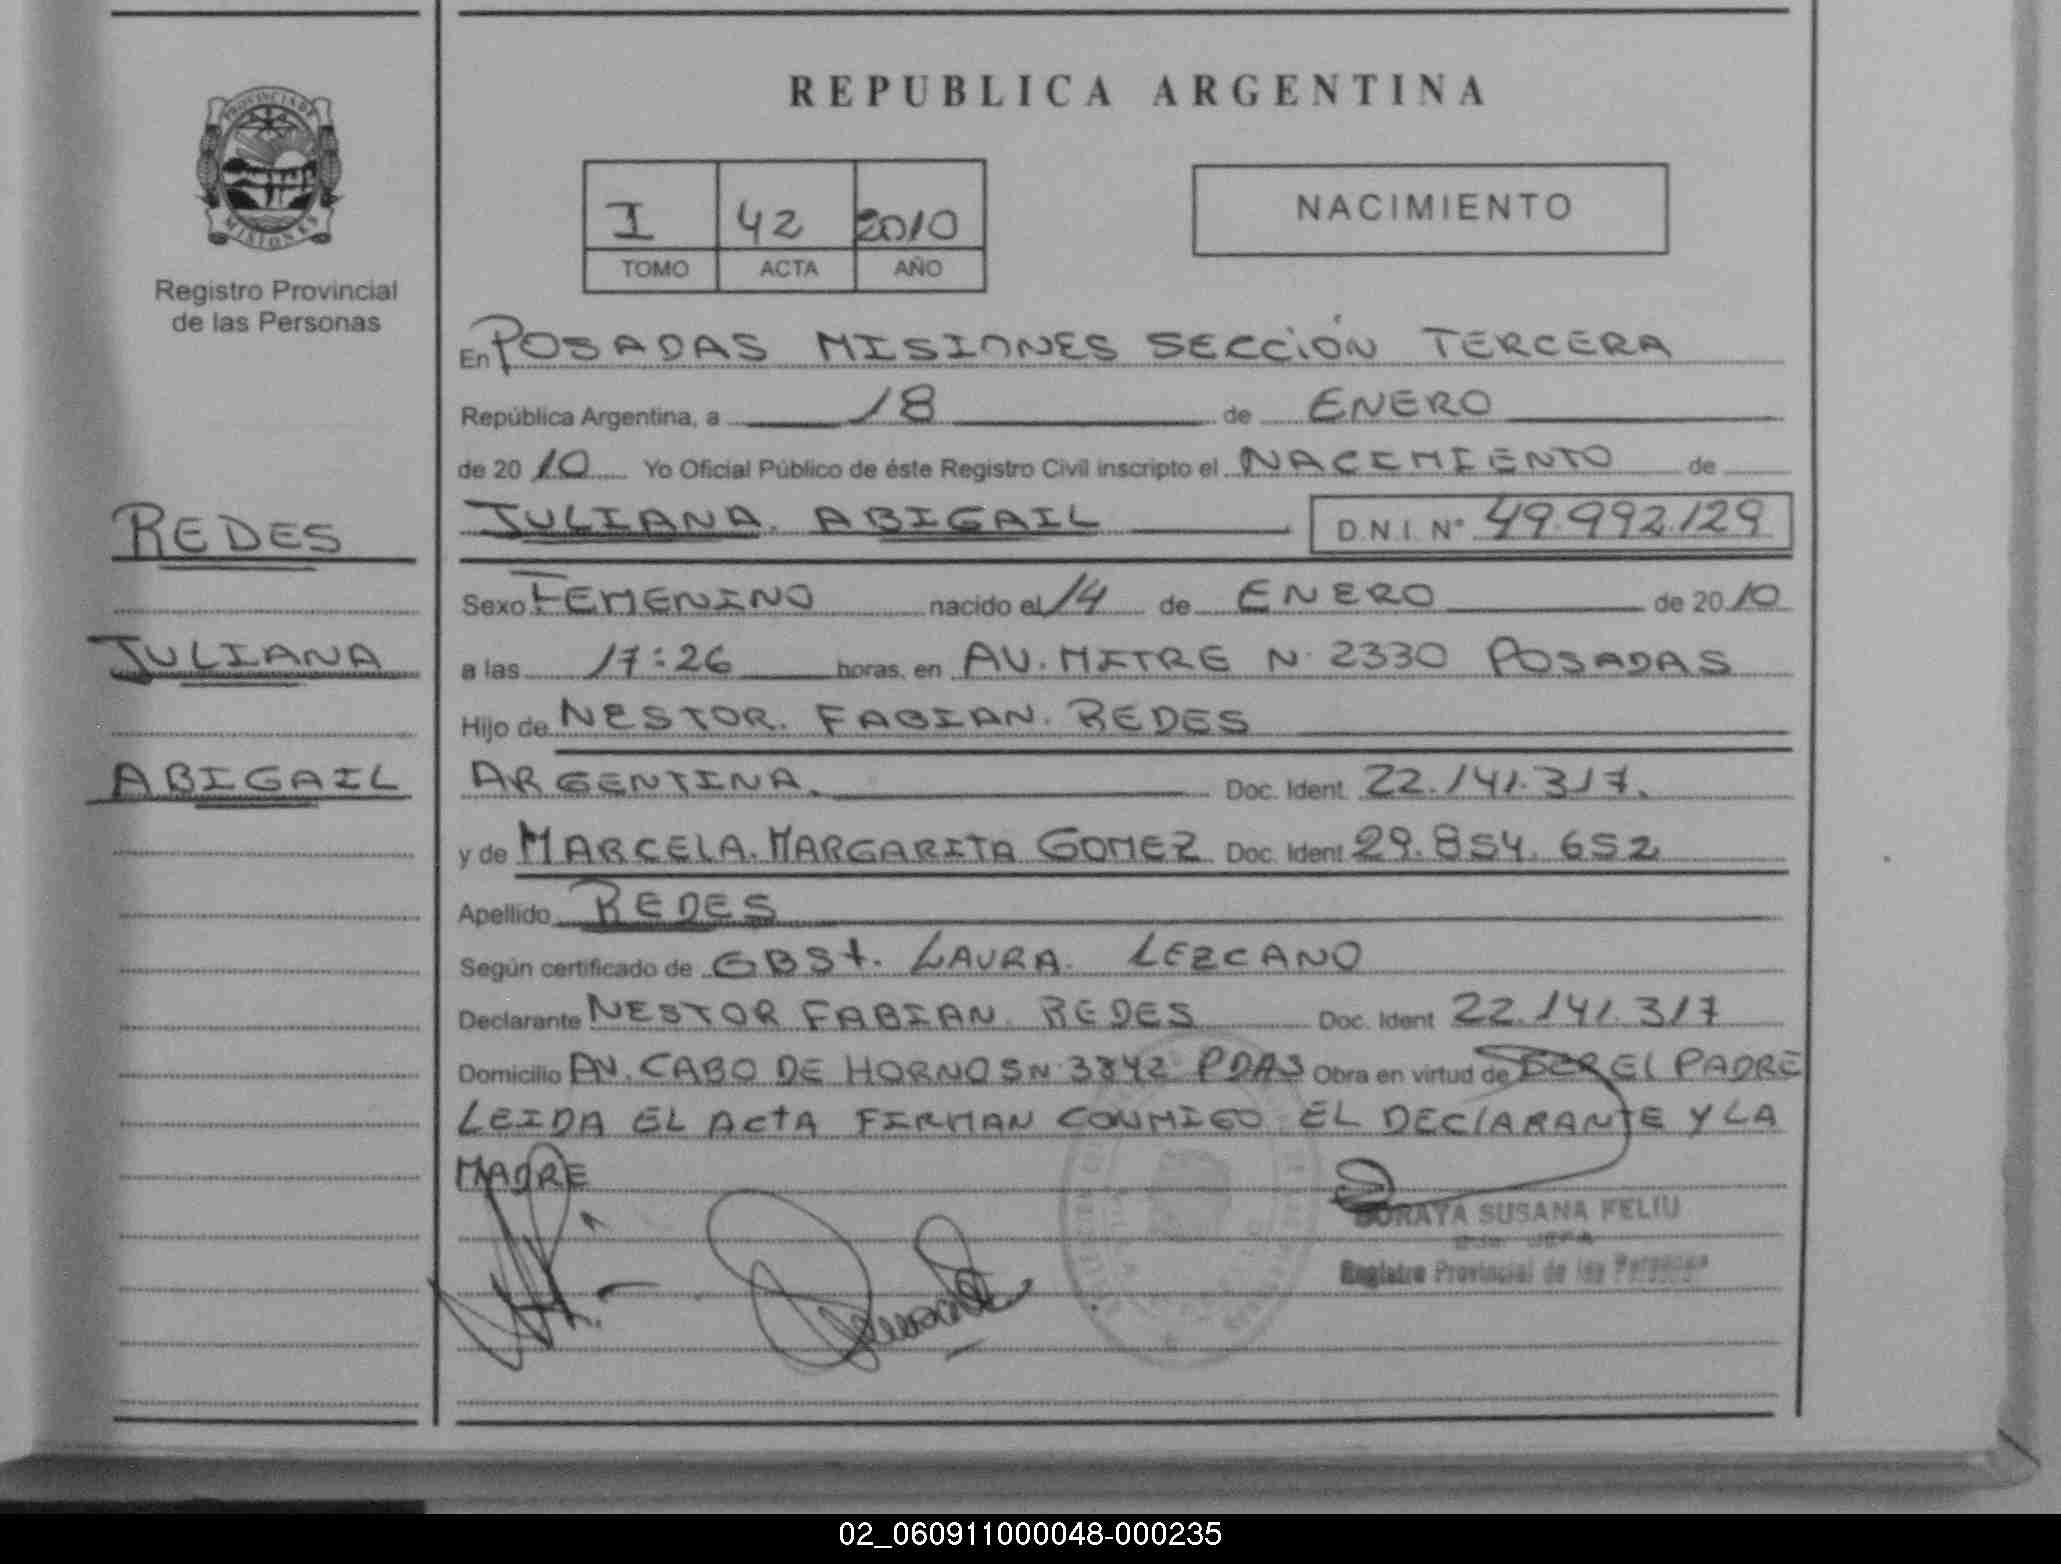 REPUBLICA ARGENTINA
PROVINCIA DE
MISIONES
Registro Provincial
de las Personas
I 42 2010
TOMO ACTA AÑO
NACIMIENTO
En POSADAS MISIONES SECCIÓN TERCERA
República Argentina, a 18 de ENERO
de 2010 Yo Oficial Público de éste Registro Civil inscripto el NACIMIENTO de
REDES
JULIANA. ABIGAIL D.N.I. Nº 49.992.129
Sexo FEMENINO nacido el 14 de ENERO de 2010
JULIANA
a las 17:26 horas, en AV. MITRE N. 2330 POSADAS
Hijo de NESTOR. FABIAN. REDES
ABIGAIL
ARGENTINA. Doc. Ident. 22.141.317.
y de MARCELA. MARGARITA GOMEZ Doc. Ident 29.854.652
Apellido REDES
Según certificado de OBSt. LAURA. LEZCANO
Declarante NESTOR FABIAN. REDES Doc. Ident 22.141.317
Domicilio AV. CABO DE HORNOS N. 3842 PDAS Obra en virtud de SER EL PADRE
LEIDA EL ACTA FIRMAN CONMIGO EL DECLARANTE Y LA
MADRE
SORAYA SUSANA FELIU
JEFA
Registro Provincial de las Personas
02_060911000048-000235